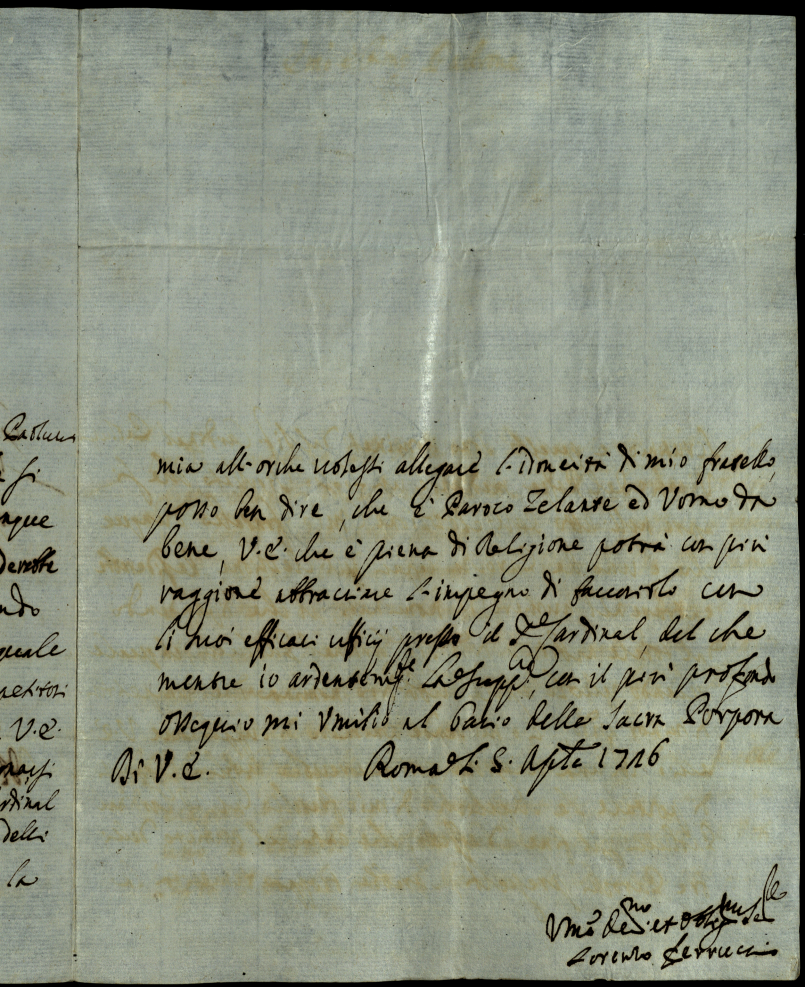 Paolucci
si
nque
derebbe
ndo
quale
petitori
V.E.
dinal
delli
la
mia all'orche volessi allegare l'idoneità di mio fratello,
posso ben dire, che è Paroco Zelante ed Vomo da
bene, V.E. che è piena di Religione potrà con più
raggione abbracciare l'impegno di favorirlo con
li suoi efficaci ufficij presso il Sardinal, del che
mentre io ardentemte La supp.co, con il più profondo
ossequio mi Vmilio al bacio della Sacra Porpora
Di V.E. Roma li 5. Aple 1716
Vmo Devmo et Obbligmo Sre
Lorenzo Ferruccio